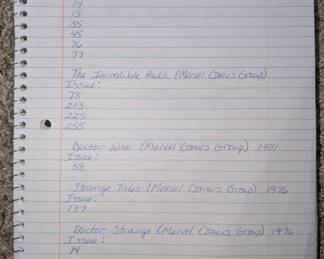 14
15
35
45
76
77
The Incredible Hulk (Marvel Comics Group)
Issue:
78
213
225
255
Doctor Who (Marvel Comics Group) 1981
Issue:
58
Strange Tales (Marvel Comics Group) 1976
Issue:
187
Doctor Strange (Marvel Comics Group) 1976
Issue:
14